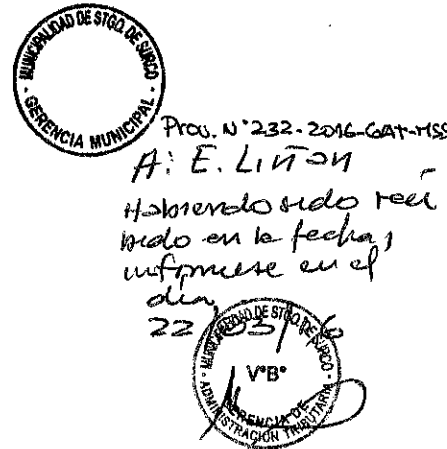 MUNICIPALIDAD DE STGO. DE SURCO
- GERENCIA MUNICIPAL -
Prov. N°232-2016-GAT-MSS
A: E. Liñan
Habiendo sido reci
bido en la fecha,
infórmese en el
día,
22/03/16
MUNICIPALIDAD DE STGO. DE SURCO
V°B°
GERENCIA DE
ADMINISTRACIÓN TRIBUTARIA